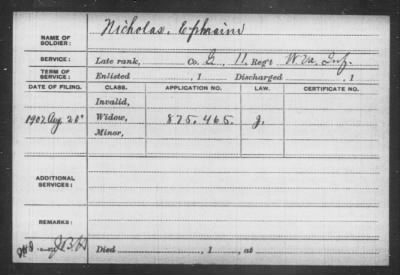 NAME OF SOLDIER: Nicholas, Ephraim
SERVICE: Late rank, Co. G, 11. Reg't W. Va. Inf.
TERM OF SERVICE: Enlisted , 1 Discharged , 1
DATE OF FILING. CLASS. APPLICATION NO. LAW. CERTIFICATE NO.
Invalid,
1902 Aug 20 Widow, 875.465. J.
Minor,
ADDITIONAL SERVICES:
REMARKS:
Died , 1 , at